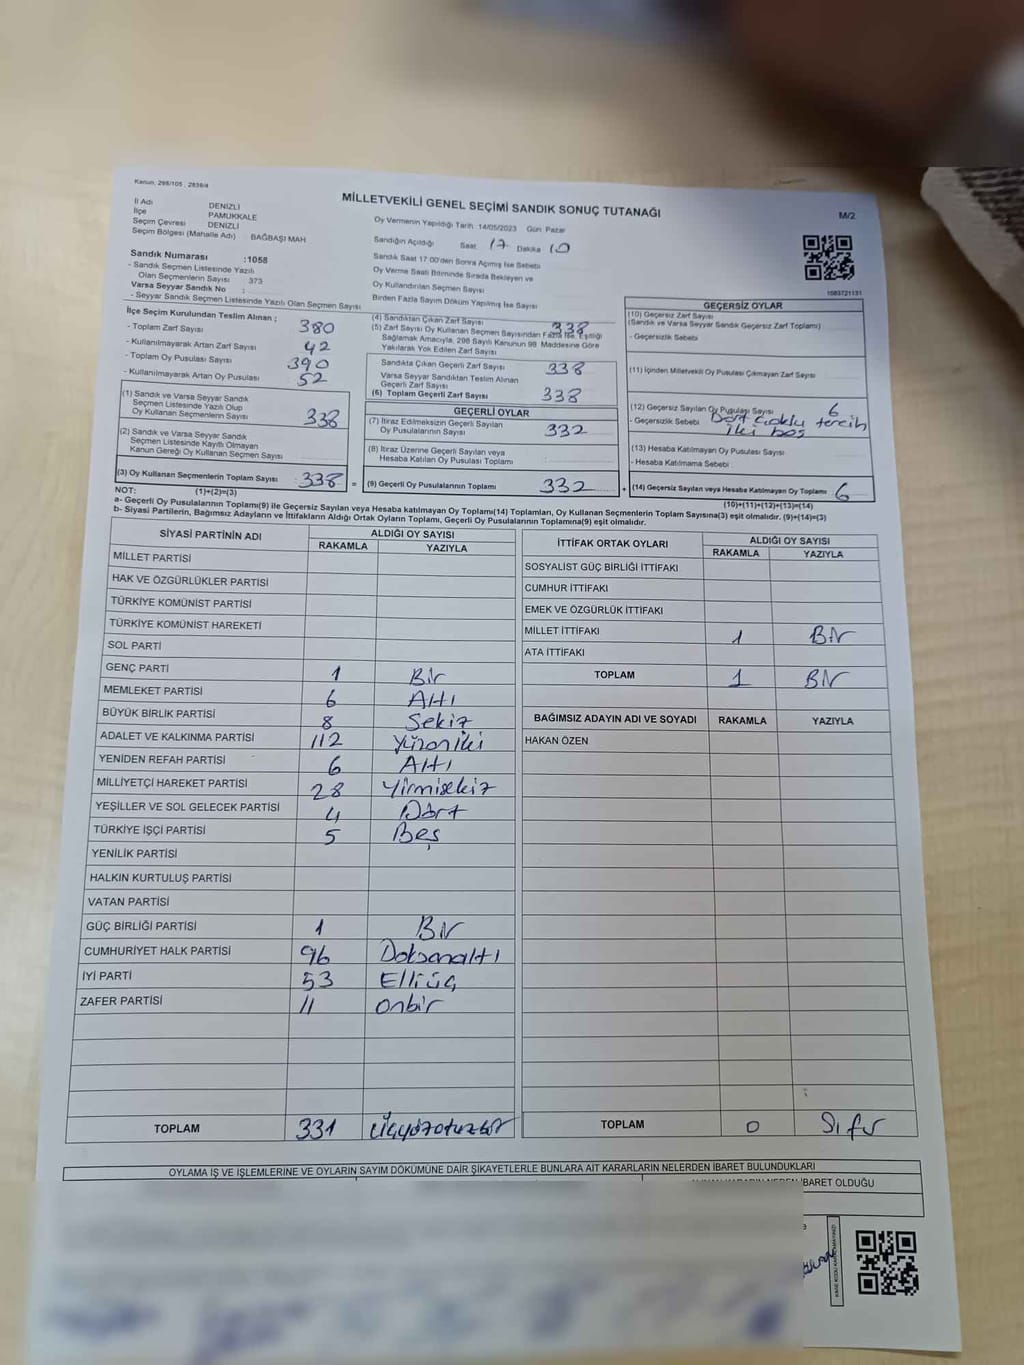 Kanun: 298/105 , 2839/4
MİLLETVEKİLİ GENEL SEÇİMİ SANDIK SONUÇ TUTANAĞI
M/2
İl Adı DENİZLİ
İlçe PAMUKKALE
Seçim Çevresi DENİZLİ
Seçim Bölgesi (Mahalle Adı) : BAĞBAŞI MAH
Oy Vermenin Yapıldığı Tarih 14/05/2023 Gün Pazar
Sandığın Açıldığı Saat 17 Dakika 10
Sandık Saat 17:00'den Sonra Açılmış İse Sebebi
Oy Verme Saati Bitiminde Sırada Bekleyen ve
Oy Kullandırılan Seçmen Sayısı
Birden Fazla Sayım Döküm Yapılmış İse Sayısı
1083721131
Sandık Numarası :1058
- Sandık Seçmen Listesinde Yazılı
Olan Seçmenlerin Sayısı 373
Varsa Seyyar Sandık No :
- Seyyar Sandık Seçmen Listesinde Yazılı Olan Seçmen Sayısı
İlçe Seçim Kurulundan Teslim Alınan ;
- Toplam Zarf Sayısı 380
- Kullanılmayarak Artan Zarf Sayısı 42
- Toplam Oy Pusulası Sayısı 390
- Kullanılmayarak Artan Oy Pusulası 52
(1) Sandık ve Varsa Seyyar Sandık
Seçmen Listesinde Yazılı Olup
Oy Kullanan Seçmenlerin Sayısı 338
(2) Sandık ve Varsa Seyyar Sandık
Seçmen Listesinde Kayıtlı Olmayan
Kanun Gereği Oy Kullanan Seçmen Sayısı
(3) Oy Kullanan Seçmenlerin Toplam Sayısı 338 =
(4) Sandıktan Çıkan Zarf Sayısı 338
(5) Zarf Sayısı Oy Kullanan Seçmen Sayısından Fazla İse, Eşitliği
Sağlamak Amacıyla, 298 Sayılı Kanunun 98. Maddesine Göre
Yakılarak Yok Edilen Zarf Sayısı
Sandıkta Çıkan Geçerli Zarf Sayısı 338
Varsa Seyyar Sandıktan Teslim Alınan
Geçerli Zarf Sayısı
(6) Toplam Geçerli Zarf Sayısı 338
GEÇERLİ OYLAR
(7) İtiraz Edilmeksizin Geçerli Sayılan
Oy Pusulalarının Sayısı 332
(8) İtiraz Üzerine Geçerli Sayılan veya
Hesaba Katılan Oy Pusulası Toplamı
(9) Geçerli Oy Pusulalarının Toplamı 332 +
GEÇERSİZ OYLAR
(10) Geçersiz Zarf Sayısı
(Sandık ve Varsa Seyyar Sandık Geçersiz Zarf Toplamı)
- Geçersizlik Sebebi
(11) İçinden Milletvekili Oy Pusulası Çıkmayan Zarf Sayısı
(12) Geçersiz Sayılan Oy Pusulası Sayısı 6
- Geçersizlik Sebebi Dört çoklu tercih
iki boş
(13) Hesaba Katılmayan Oy Pusulası Sayısı
- Hesaba Katılmama Sebebi
(14) Geçersiz Sayılan veya Hesaba Katılmayan Oy Toplamı 6
NOT: (1)+(2)=(3)
(10)+(11)+(12)+(13)=(14)
a- Geçerli Oy Pusulalarının Toplamı(9) ile Geçersiz Sayılan veya Hesaba katılmayan Oy Toplamı(14) Toplamları, Oy Kullanan Seçmenlerin Toplam Sayısına(3) eşit olmalıdır. (9)+(14)=(3)
b- Siyasi Partilerin, Bağımsız Adayların ve İttifakların Aldığı Ortak Oyların Toplamı, Geçerli Oy Pusulalarının Toplamına(9) eşit olmalıdır.
SİYASİ PARTİNİN ADI ALDIĞI OY SAYISI
RAKAMLA YAZIYLA
MİLLET PARTİSİ
HAK VE ÖZGÜRLÜKLER PARTİSİ
TÜRKİYE KOMÜNİST PARTİSİ
TÜRKİYE KOMÜNİST HAREKETİ
SOL PARTİ
GENÇ PARTİ 1 Bir
MEMLEKET PARTİSİ 6 Altı
BÜYÜK BİRLİK PARTİSİ 8 Sekiz
ADALET VE KALKINMA PARTİSİ 112 Yüzoniki
YENİDEN REFAH PARTİSİ 6 Altı
MİLLİYETÇİ HAREKET PARTİSİ 28 Yirmisekiz
YEŞİLLER VE SOL GELECEK PARTİSİ 4 Dört
TÜRKİYE İŞÇİ PARTİSİ 5 Beş
YENİLİK PARTİSİ
HALKIN KURTULUŞ PARTİSİ
VATAN PARTİSİ
GÜÇ BİRLİĞİ PARTİSİ 1 Bir
CUMHURİYET HALK PARTİSİ 96 Doksanaltı
İYİ PARTİ 53 Elliüç
ZAFER PARTİSİ 11 onbir
TOPLAM 331 Üçyüzotuzbir
İTTİFAK ORTAK OYLARI ALDIĞI OY SAYISI
RAKAMLA YAZIYLA
SOSYALİST GÜÇ BİRLİĞİ İTTİFAKI
CUMHUR İTTİFAKI
EMEK VE ÖZGÜRLÜK İTTİFAKI
MİLLET İTTİFAKI 1 Bir
ATA İTTİFAKI
TOPLAM 1 Bir
BAĞIMSIZ ADAYIN ADI VE SOYADI RAKAMLA YAZIYLA
HAKAN ÖZEN
TOPLAM 0 Sıfır
OYLAMA İŞ VE İŞLEMLERİNE VE OYLARIN SAYIM DÖKÜMÜNE DAİR ŞİKAYETLERLE BUNLARA AİT KARARLARIN NELERDEN İBARET BULUNDUKLARI
İBARET OLDUĞU